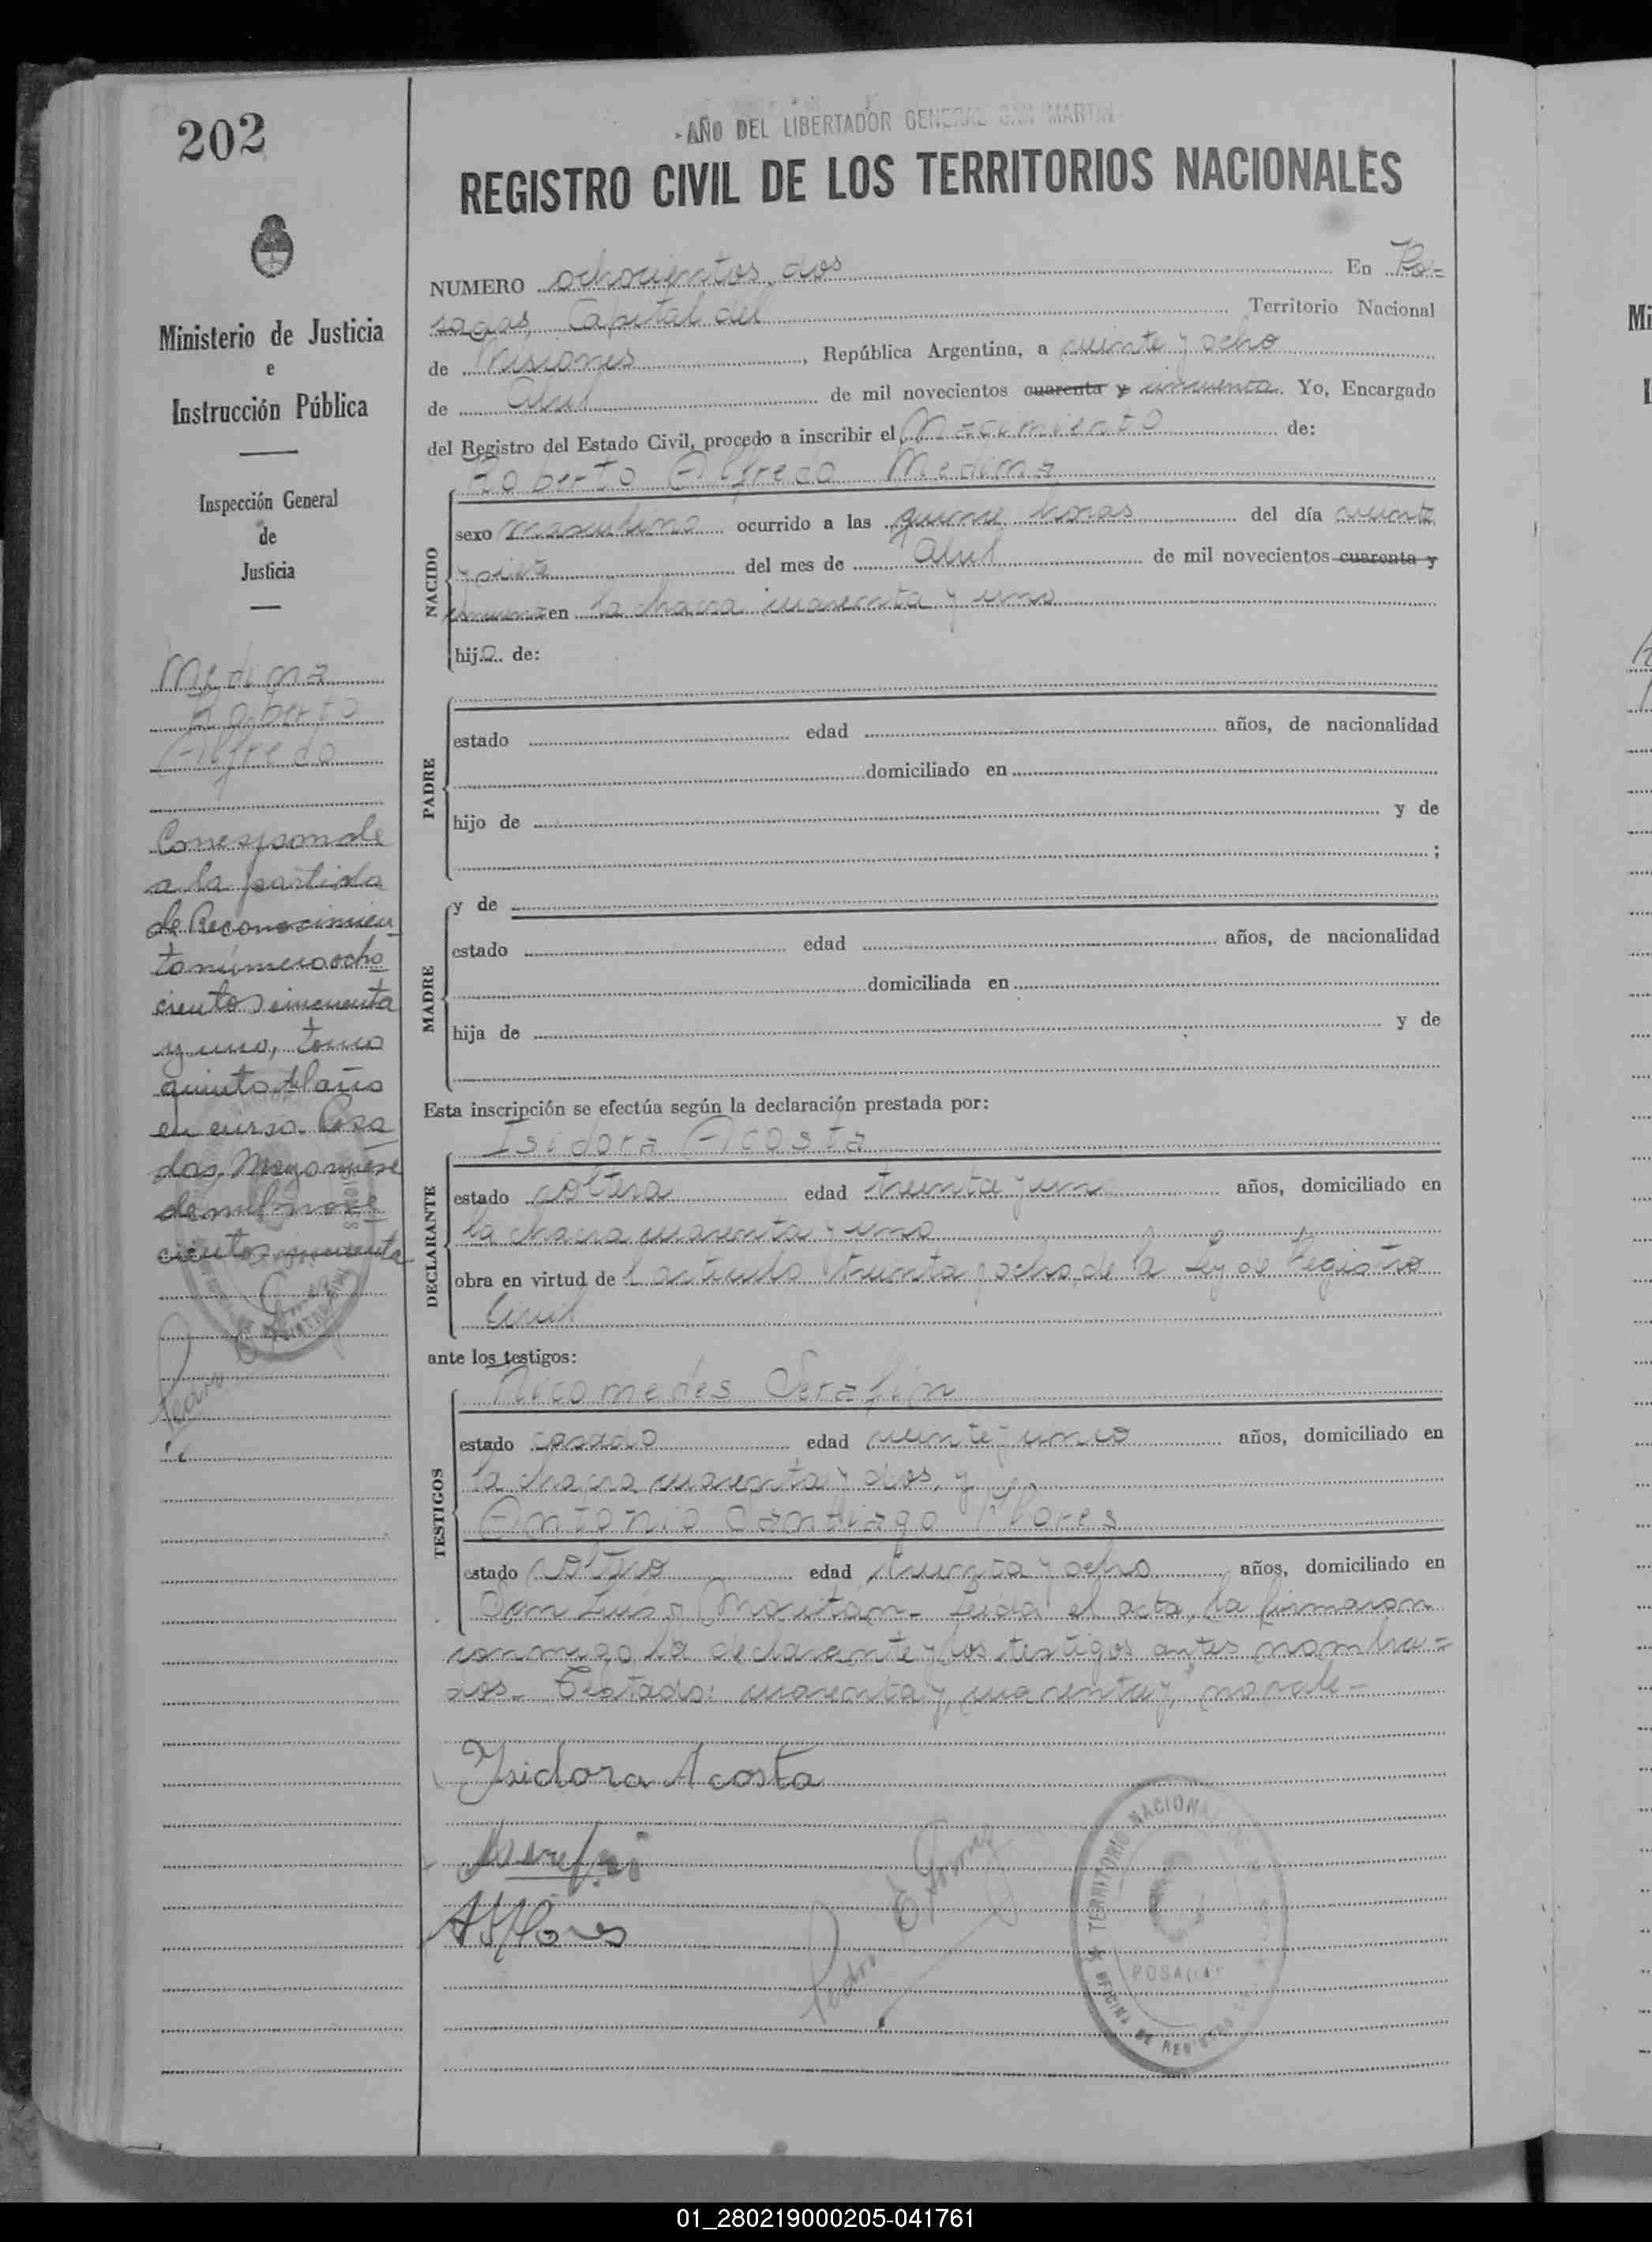 202
-AÑO DEL LIBERTADOR GENERAL SAN MARTIN-
REGISTRO CIVIL DE LOS TERRITORIOS NACIONALES
Ministerio de Justicia
e
Instrucción Pública
Inspección General
de
Justicia
Medina
Roberto
Alfredo
Corresponde
a la partida
de Reconocimien
to número ocho
cientos cincuenta
y uno, tomo
quinto del año
en curso. Posa
das, Mayo nueve
de mil nove
cientos cincuenta
NUMERO ochocientos dos En Po=
sadas, Capital del Territorio Nacional
de Misiones, República Argentina, a veinte y ocho
de Abril de mil novecientos cuarenta y cincuenta. Yo, Encargado
del Registro del Estado Civil, procedo a inscribir el Nacimiento de:
Roberto Alfredo Medina
NACIDO
sexo masculino ocurrido a las quince horas del día veinte
y siete del mes de Abril de mil novecientos cuarenta y
cincuenta en la chacra cuarenta y uno
hijo de:
PADRE
estado edad años, de nacionalidad
domiciliado en
hijo de y de
;
MADRE
y de
estado edad años, de nacionalidad
domiciliada en
hija de y de
Esta inscripción se efectúa según la declaración prestada por:
Isidora Acosta
DECLARANTE
estado soltera edad treinta y un años, domiciliado en
la chacra cuarenta y uno
obra en virtud del artículo treinta y ocho, de la Ley de Registro
Civil
ante los testigos:
TESTIGOS
Nicomedes Serafin
estado casado edad veinte y cinco años, domiciliado en
la chacra cuarenta y dos, y
Antonio Santiago Flores
estado soltero edad treinta y ocho años, domiciliado en
San Luis y Moritán.- Leída el acta, la firmaron
conmigo la declarante y los testigos antes nombra=
dos.- Testado: cuarenta y, cuarenta y, no vale.-
Isidora Acosta
Serafin
ASFlores
Pedro
TERRITORIO NACIONAL
POSADAS
OFICINA DE REGISTRO
01_280219000205-041761